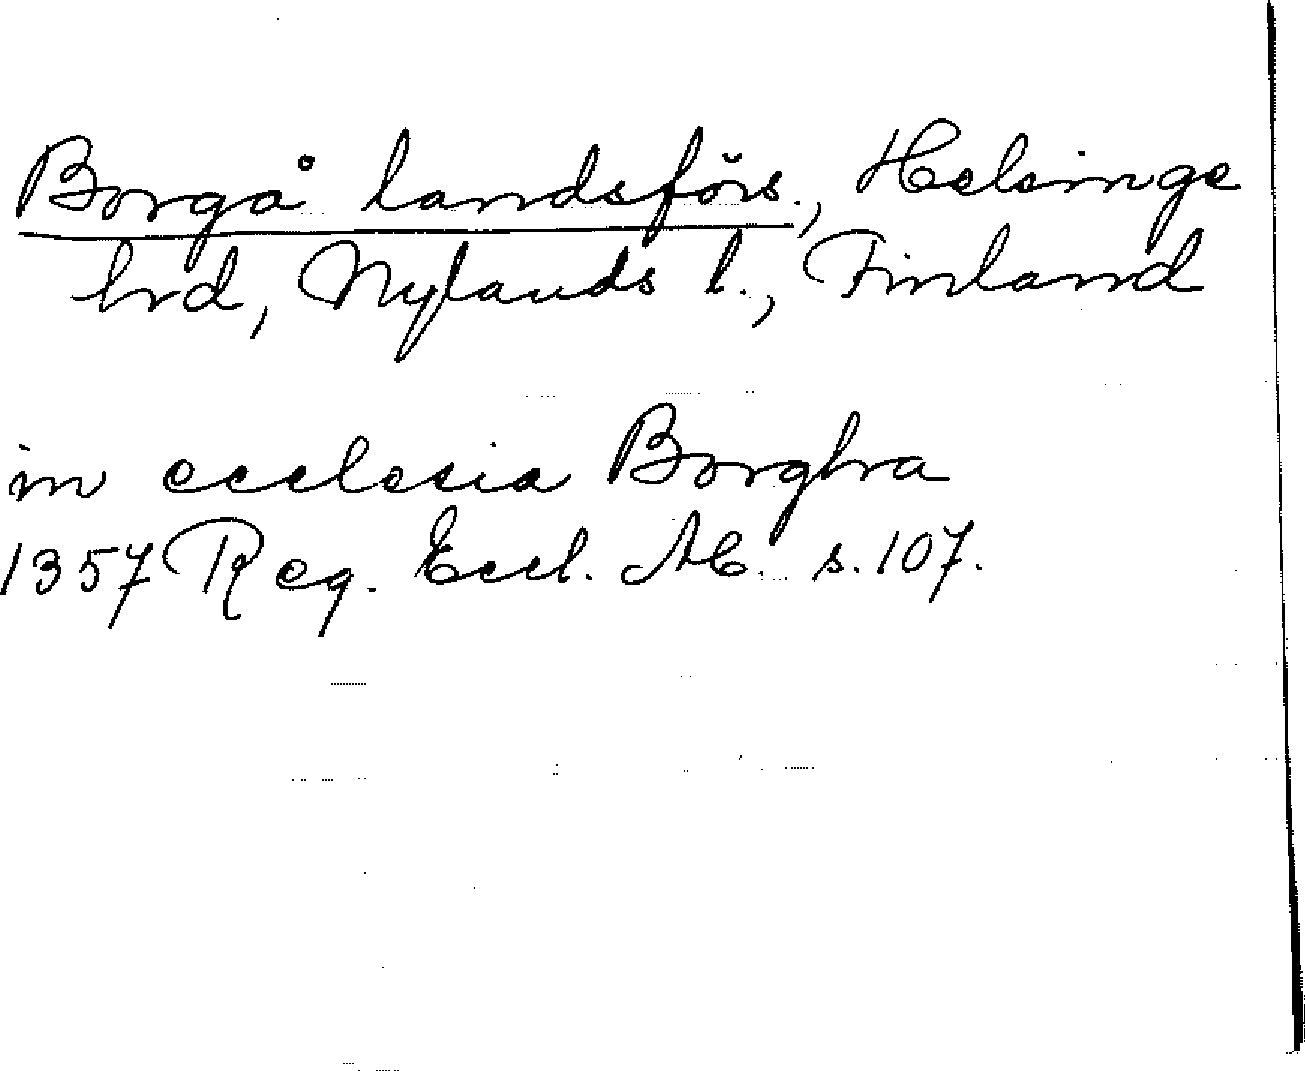 Borgå landsförs., Helsinge
hrd, Nylands l., Finland
in ecclesia Borgha
1357 Reg. Eccl. Ab. s. 107.